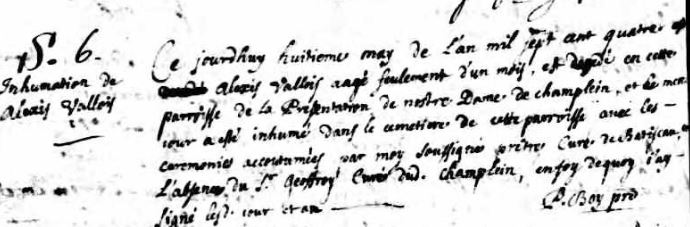 S. 6.
Inhumation de
Alexis Vallois
Ce jourdhuy huitieme may de L'an mil sept cent quatre
Alexis Vallois aagé seulement d'un mois, est decedé en cette
parroisse de la Présentation de nostre Dame de champlein, et le mesme
jour a esté inhumé dans le cemetiere de cette parroisse avec les
ceremonies accoutumées par moy soussigné prètre Curé de Batiscan,
L'absence du Sr. Geoffroy Curé dud. champlein, en foy dequoy j'ay
signé lesd. jour et an
P. Boy prd